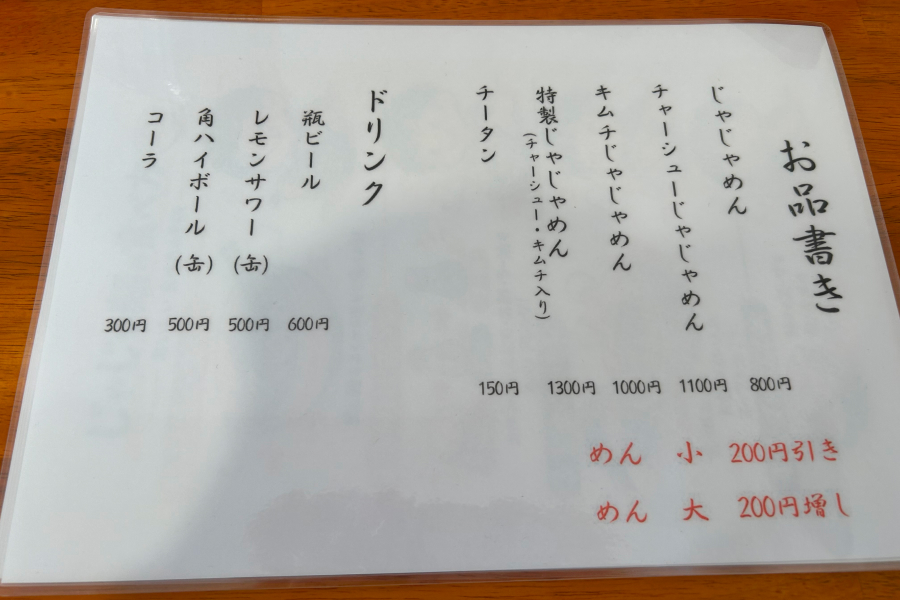 お品書き
じゃじゃめん 800円
チャーシューじゃじゃめん 1100円
キムチじゃじゃめん 1000円
特製じゃじゃめん 1300円
(チャーシュー・キムチ入り)
チータン 150円
めん 小 200円引き
めん 大 200円増し
ドリンク
瓶ビール 600円
レモンサワー (缶) 500円
角ハイボール (缶) 500円
コーラ 300円